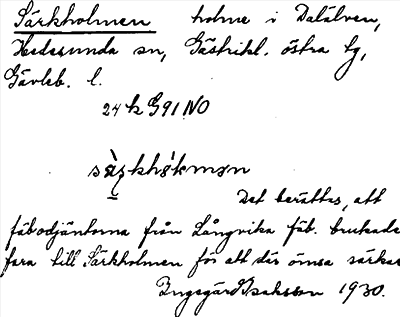 Särkholmen holme i Dalälven,
Hedesunda sn, Gästrikl. östra tg,
Gävleb. l.
24 k G91 NO
Det berättas, att
fäbodjäntorna från Långvika fäb. brukade
fara till Särkholmen för att där ömsa särkar
Ingegärd Isaksson 1930.